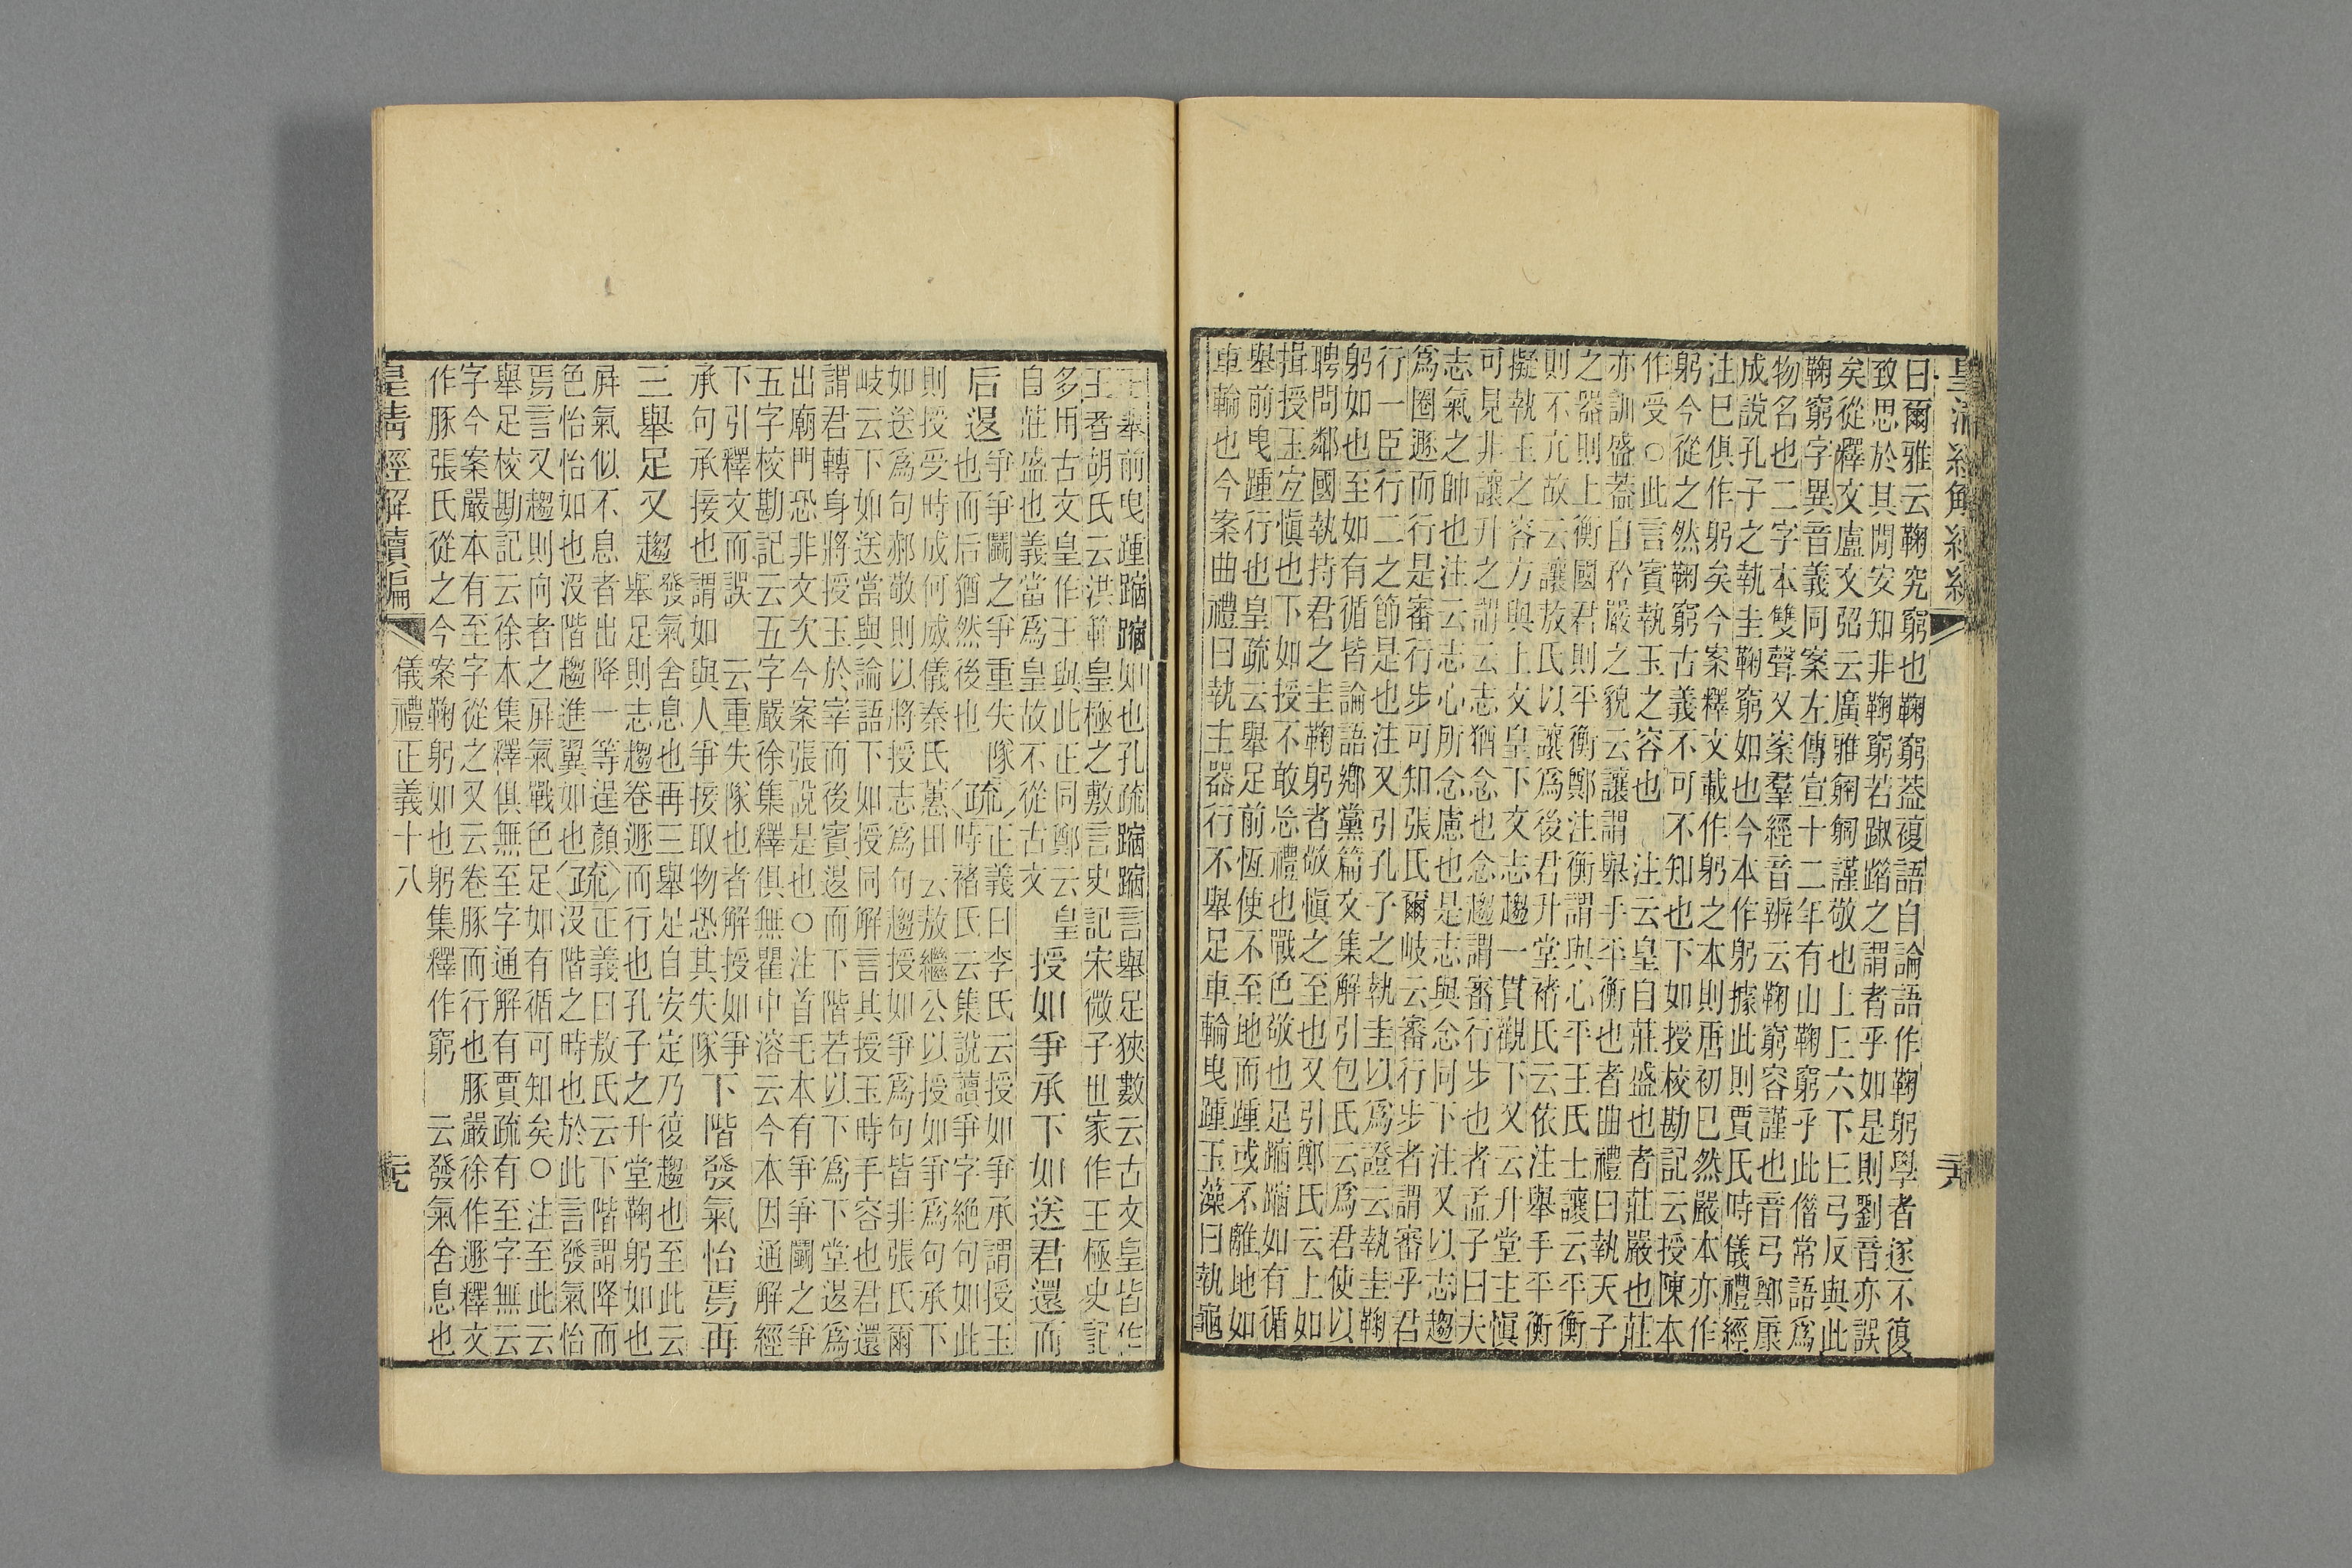 皇清經解續編
曰爾雅云鞠究窮也鞠窮葢複語自論語作鞠躬學者遂不復
致思於其閒安知非鞠窮若踧踖之謂者乎如是則劉音亦誤
矣從釋文盧文弨云廣雅匑匑謹敬也上𠀉六下𠀉弓反與此
鞠窮字異音義同案左傳宣十二年有山鞠窮乎此偺常語爲
物名也二字本雙聲又案羣經音辨云鞠窮容謹也音弓鄭康
成說孔子之執圭鞠窮如也今本作躬據此則賈氏時儀禮經
注巳俱作躬矣今案釋文載作躬之本則唐初巳然嚴本亦作
躬今從之然鞠窮古義不可不知也下如授校勘記云授陳本
作受○此言賓執玉之容也 注云皇自莊盛也者莊嚴也莊
亦訓盛葢自矜嚴之貌云讓謂舉手平衡也者曲禮曰執天子
之器則上衡國君則平衡鄭注衡謂與心平王氏士讓云平衡
則不亢故云讓敖氏以讓爲後君升堂褚氏云依注舉手平衡
擬執玉之容方與上文皇下文志趨一貫觀下又云升堂主愼
可見非讓升之謂云志猶念也念趨謂審行步也者孟子曰夫
志氣之帥也注云志心所念慮也是志與念同下注又以志趨
爲圈遯而行是審行步可知張氏爾岐云審行步者謂審乎君
行一臣行二之節是也注又引孔子之執圭以爲證云執圭鞠
躬如也至如有循皆論語鄉黨篇文集解引包氏云爲君使以
聘問鄰國執持君之圭鞠躬者敬愼之至也又引鄭氏云上如
揖授玉宜愼也下如授不敢忘禮也戰色敬也足蹜蹜如有循
舉前曳踵行也皇疏云舉足前恆使不至地而踵或不離地如
車輪也今案曲禮曰執主器行不舉足車輪曳踵玉藻曰執龜
玉舉前曳踵蹜蹜如也孔疏蹜蹜言舉足狹數云古文皇皆作
王者胡氏云洪範皇極之敷言史記宋微子世家作王極史記
多用古文皇作王與此正同鄭云皇
自莊盛也義當爲皇故不從古文 授如爭承下如送君還而
后退 爭爭鬭之爭重失隊 疏 正義曰李氏云授如爭承謂授玉
也而后猶然後也 時褚氏云集說讀爭字絶句如此
則授受時成何威儀秦氏蕙田云敖繼公以授如爭爲句承下
如送爲句郝敬則以將授志爲句趨授如爭爲句皆非張氏爾
岐云下如送當與論語下如授同解言其授玉時手容也君還
謂君轉身將授玉於宰而後賓退而下階若以下爲下堂退爲
出廟門恐非文次今案張說是也○注首毛本有爭爭鬭之爭
五字校勘記云五字嚴徐集釋俱無瞿中溶云今本因通解經
下引釋文而誤 云重失隊也者解授如爭
承句承接也謂如 與人爭接取物恐其失隊 下階發氣怡焉再
三舉足又趨 發氣舍息也再三舉足自安定乃復趨也至此云
舉足則志趨卷遯而行也孔子之升堂鞠躬如也
屏氣似不息者出降一等逞顏 疏 正義曰敖氏云下階謂降而
色怡怡如也沒階趨進翼如也 沒階之時也於此言發氣怡
焉言又趨則向者之屏氣戰色足如有循可知矣○注至此云
舉足校勘記云徐本集釋俱無至字通解有賈疏有至字無云
字今案嚴本有至字從之又云卷豚而行也豚嚴徐作遯釋文
作豚張氏從之今案鞠躬如也躬集釋作窮 云發氣舍息也
皇清經解續編 儀禮正義十八